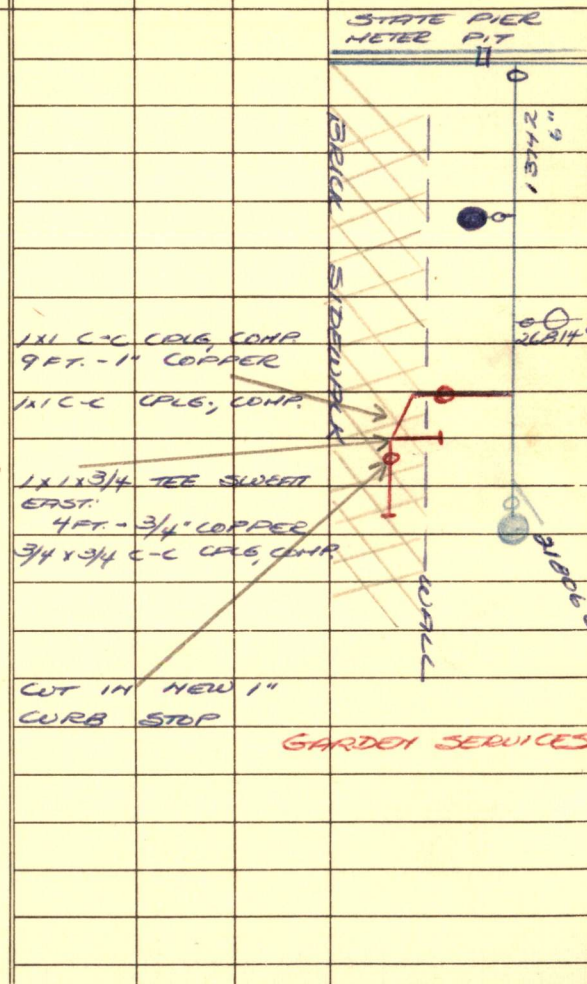 STATE PIER
METER PIT
13742
6"
BRICK SIDEWALK
1x1 C-C CPLG, COMP.
9 FT. - 1" COPPER
1x1 C-C CPLG, COMP.
1x1x3/4 TEE SWEAT
EAST:
4 FT. - 3/4" COPPER
3/4 x 3/4 C-C CPLG, COMP.
WALL
CUT IN NEW 1"
CURB STOP
GARDEN SERVICES